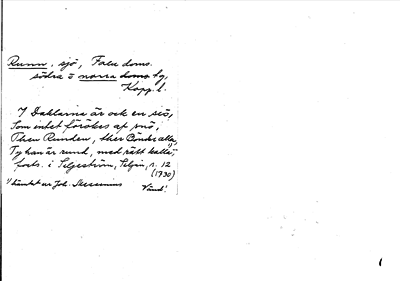 Runn, sjö, Falu doms.
södra o norra doms. tg,
Kopp. l.
I Dahlarna är ock en siö,
Som intet förökes af snö,
Then Runden, ther Bönder alla,
Ty han är rund, med rätt kalla,
forts. i Seljeström, Seljan, s. 12
(1930)
hämtat ur Joh. Messenius
Vänd!